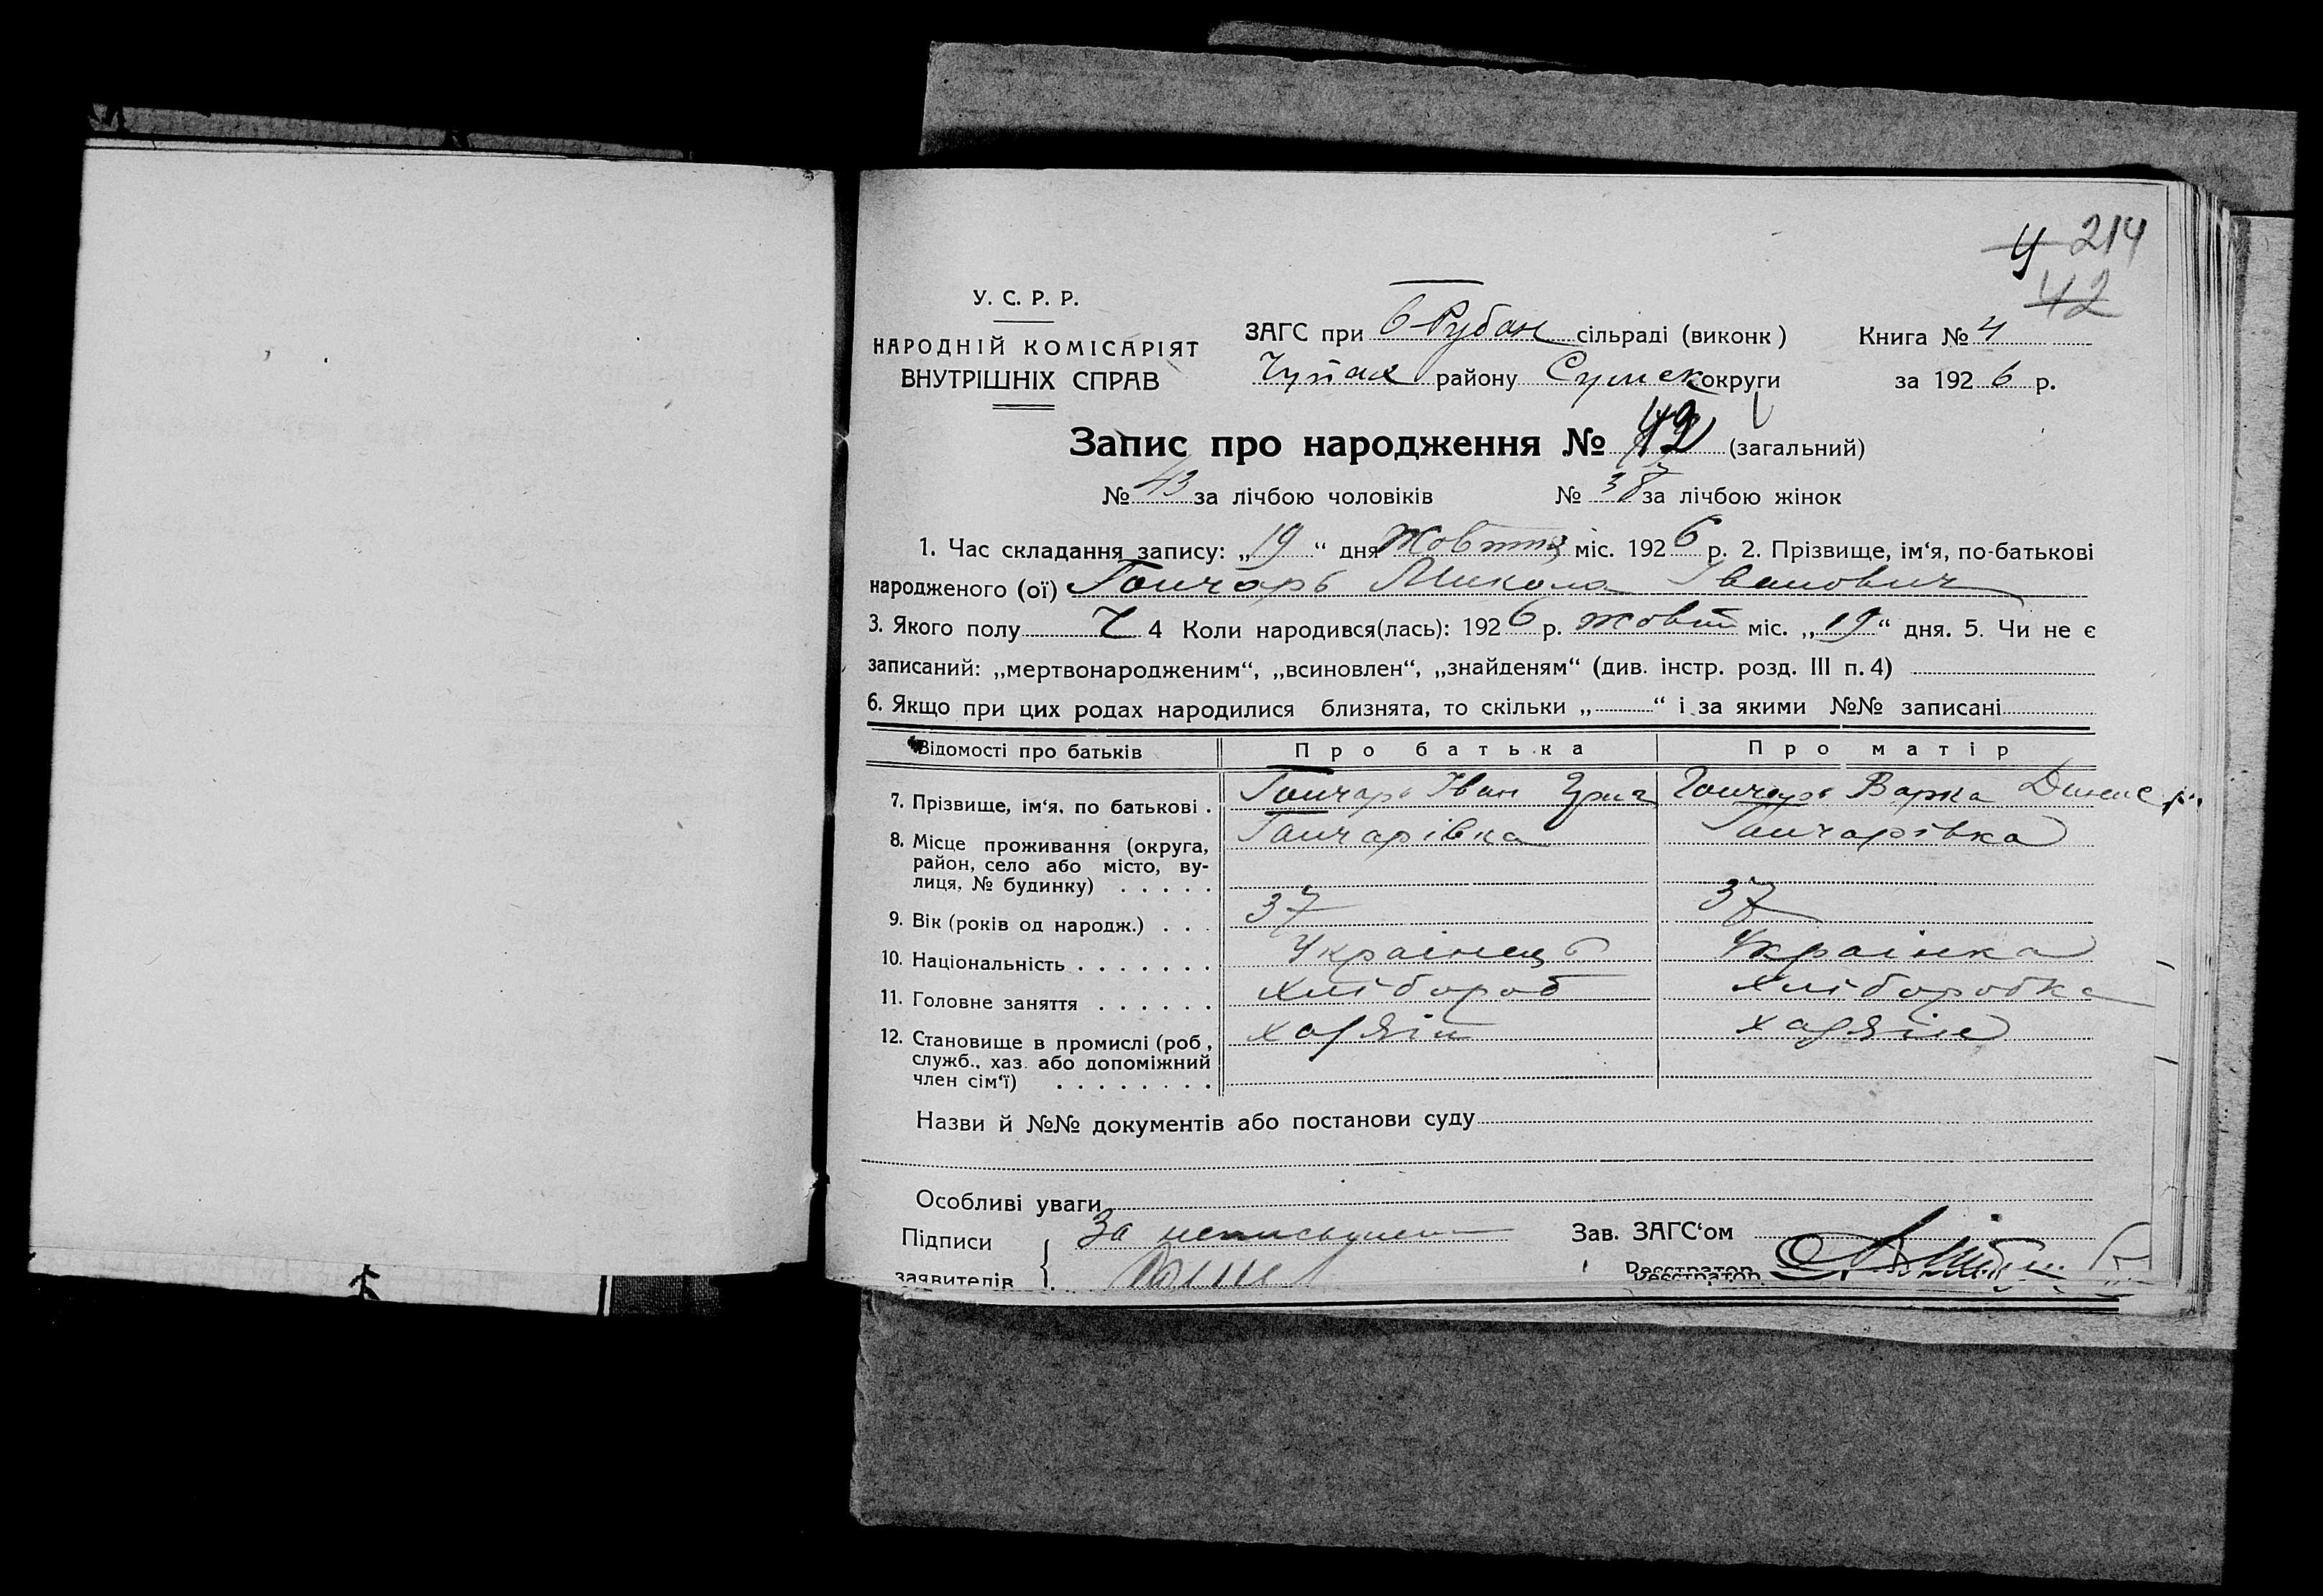 4 214
42
У. С. Р. Р.
НАРОДНІЙ КОМІСАРІЯТ
ВНУТРІШНІХ СПРАВ
ЗАГС при В Рубан сільраді (виконк)
Чупах району Сумск округи
Книга № 4
за 1926 р.
Запис про народження № (загальний)
№ 43 за лічбою чоловіків № 38 за лічбою жінок
1. Час складання запису: „19“ дня Жовтня міс. 1926 р. 2. Прізвище, ім‘я, по-батькові
народженого (ої) Гончарь Микола Іванович
3. Якого полу Ч 4 Коли народився(лась): 1926 р. жовт міс. „19“ дня. 5. Чи не є
записаний: „мертвонародженим“, „всиновлен“, „знайденям“ (див. інстр. розд. III п. 4)
6. Якщо при цих родах народилися близнята, то скільки „ “ і за якими №№ записані
Відомості про батьків Про батька Про матір
7. Прізвище, ім‘я, по батькові . Гончарь Іван Григ Гончарь Варка
8. Місце проживання (округа, Гончарівка Гончарівка
район, село або місто, ву-
лиця, № будинку) . . . . .
9. Вік (років од народж.) . . . 37 37
10. Національність . . . . . . . Украінець Украінка
11. Головне заняття . . . . . . Хлібороб Хліборобка
12. Становище в промислі (роб, хазяін хазяін
служб., хаз. або допоміжний
член сім‘ї) . . . . . . . .
Назви й №№ документів або постанови суду
Особливі уваги
Підписи За
заявителів
Зав. ЗАГС‘ом
Реєстратор